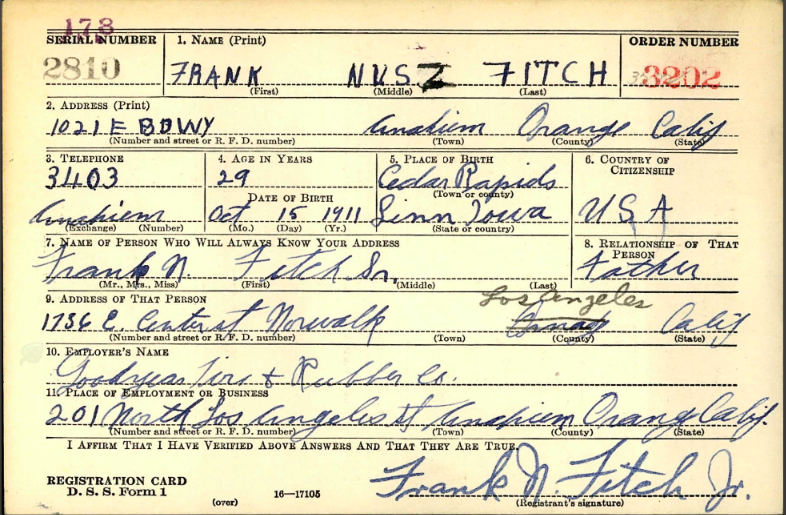 178
SERIAL NUMBER 1. NAME (Print) ORDER NUMBER
2810 FRANK NUSZ FITCH 3202
(First) (Middle) (Last)
2. ADDRESS (Print)
1021 E BDWY Anahiem Orange Calif
(Number and street or R. F. D. number) (Town) (County) (State)
3. TELEPHONE 4. AGE IN YEARS 5. PLACE OF BIRTH 6. COUNTRY OF CITIZENSHIP
3403 29 Cedar Rapids
DATE OF BIRTH (Town or county)
Anahiem Oct 15 1911 Linn Iowa USA
(Exchange) (Number) (Mo.) (Day) (Yr.) (State or country)
7. NAME OF PERSON WHO WILL ALWAYS KNOW YOUR ADDRESS 8. RELATIONSHIP OF THAT PERSON
Frank N. Fitch Sr. Father
(Mr., Mrs., Miss) (First) (Middle) (Last)
9. ADDRESS OF THAT PERSON Los Angeles
1736 E. Center st Norwalk Calif
(Number and street or R. F. D. number) (Town) (County) (State)
10. EMPLOYER'S NAME
Goodyear Tire & Rubber Co.
11. PLACE OF EMPLOYMENT OR BUSINESS
201 North Los Angeles St Anahiem Orange Calif.
(Number and street or R. F. D. number) (Town) (County) (State)
I AFFIRM THAT I HAVE VERIFIED ABOVE ANSWERS AND THAT THEY ARE TRUE.
REGISTRATION CARD
D. S. S. Form 1 (over) 16—17105 Frank N. Fitch Jr.
(Registrant's signature)